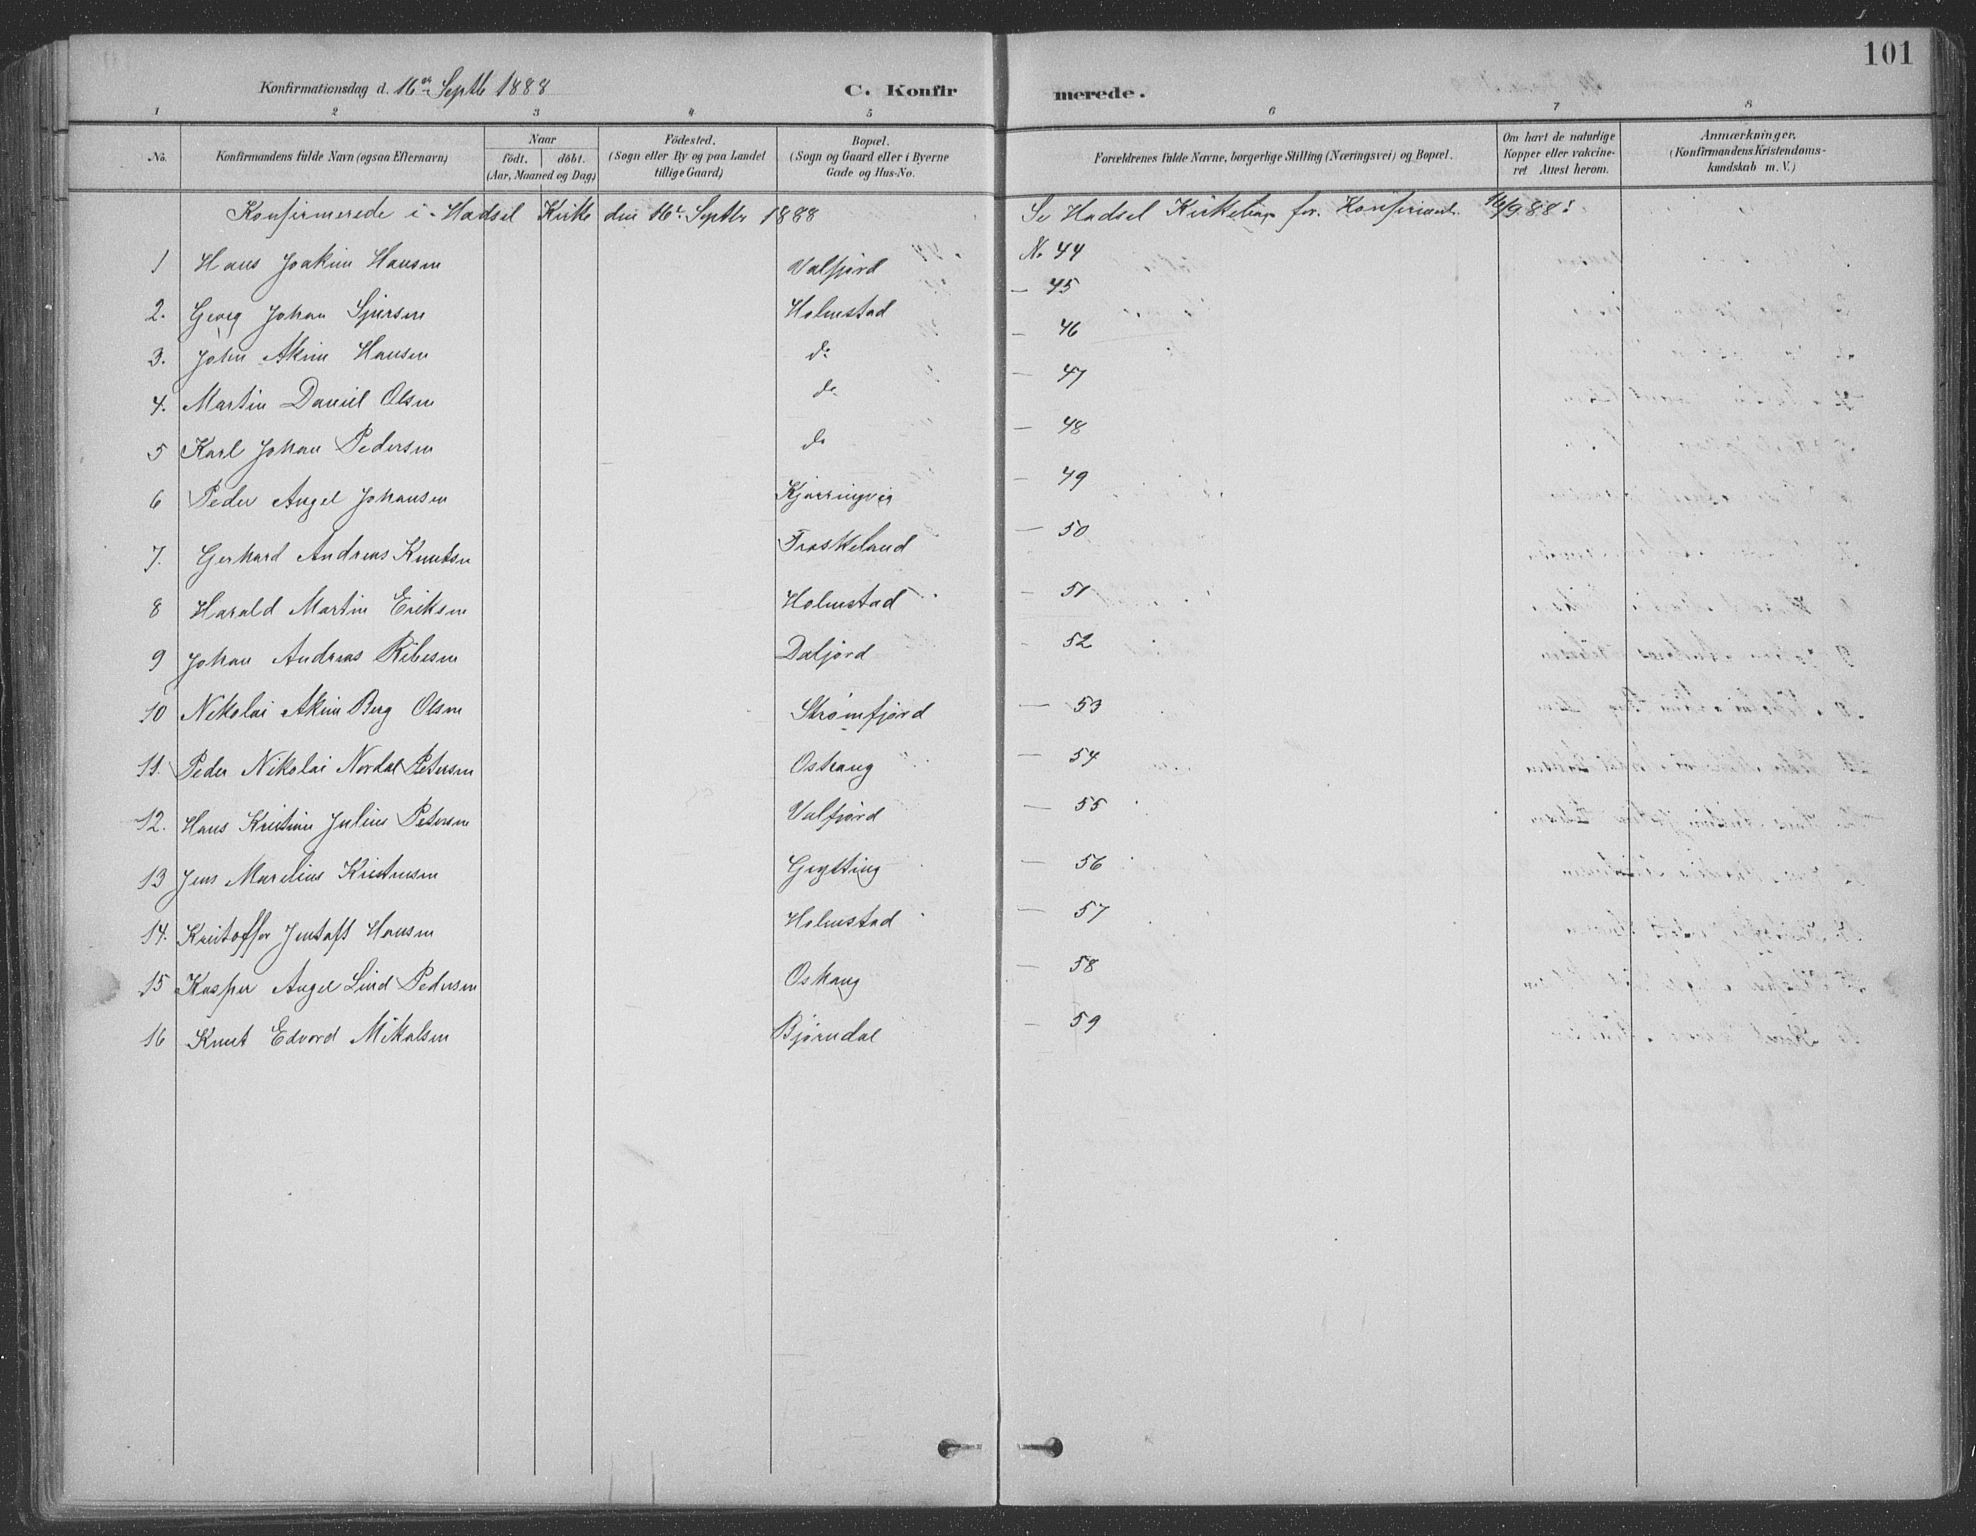 101
Konfirmationsdag d. 16de Septb 1888 C. Konfirmerede.
1 2 3 4 5 6 7 8
No. Konfirmandens fulde Navn (ogsaa Efternavn) Naar født. døbt. (Aar, Maaned og Dag) Födested. (Sogn eller By og paa Landet tillige Gaard) Bopæl. (Sogn og Gaard eller i Byerne Gade og Hus-No. Forældrenes fulde Navne, borgerlige Stilling (Næringsvei) og Bopæl. Om havt de naturlige Kopper eller vakcineret Attest herom. Anmærkninger. (Konfirmandens Kristendomskundskab m. V.)
Konfirmerede i Hadsel Kirke den 16de Septbr 1888 Se Hadsel Kirkebog for Konfirmant. 16/9 88!
1 Hans Joakim Hansen Valfjord No 44
2. Georg Johan Sjursen Holmstad — 45
3. John Akim Hansen do — 46
4. Martin Daniel Olsen do — 47
5 Karl Johan Pedersen do — 48
6 Peder Angel Johansen Kjerringvig — 49
7. Gerhard Andreas Knutsen Fraskeland — 50
8 Harald Martin Eriksen Holmstad — 51
9 Johan Andreas Ribesen Daljord - 52
10 Nikolai Akim Berg Olsen Strømfjord — 53
11. Peder Nikolai Nordal Petersen Oshaug — 54
12. Hans Kristian Julius Petersen Valfjord — 55
13 Jens Marelius Kristensen Grytting — 56
14. Kristoffer Jentoft Hansen Holmstad — 57
15 Kasper Angel Lind Pedersen Oshaug — 58
16 Knut Edvard Mikalsen Bjørndal — 59